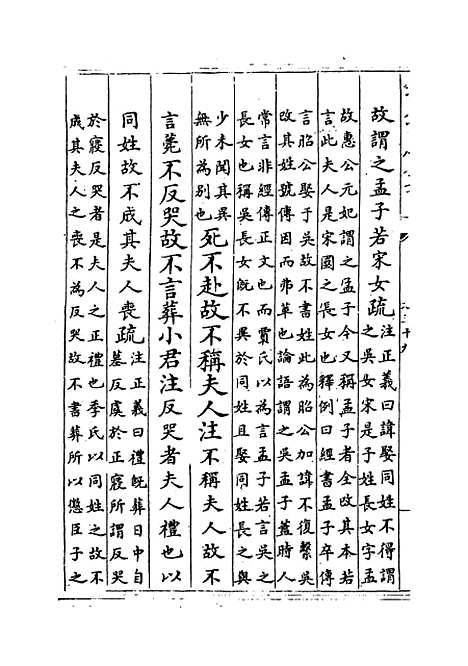 故謂之孟子若宋女疏
注正義曰諱娶同姓不得謂
之吳女宋是子姓長女字孟
故惠公元妃謂之孟子今又稱孟子者全改其本若
言此夫人是宋國之長女也釋例曰經書孟子卒傳
言昭公娶于吳故不書姓此為昭公加諱不復繫吳
改其姓號傳因而弗革也論語謂之吳孟子蓋時人
常言非經傳正文也而賈氏以為言孟子若言吳之
長女也稱吳長女既不異於同姓且娶同姓長之與
少未聞其異
無所為別也
死不赴故不稱夫人注不稱夫人故不
言薨不反哭故不言葬小君注反哭者夫人禮也以
同姓故不成其夫人喪疏
注正義曰禮既葬日中自
墓反虞於正寢所謂反哭
於寢反哭者是夫人之正禮也季氏以同姓之故不
成其夫人之喪不為反哭故不書葬所以懲臣子之